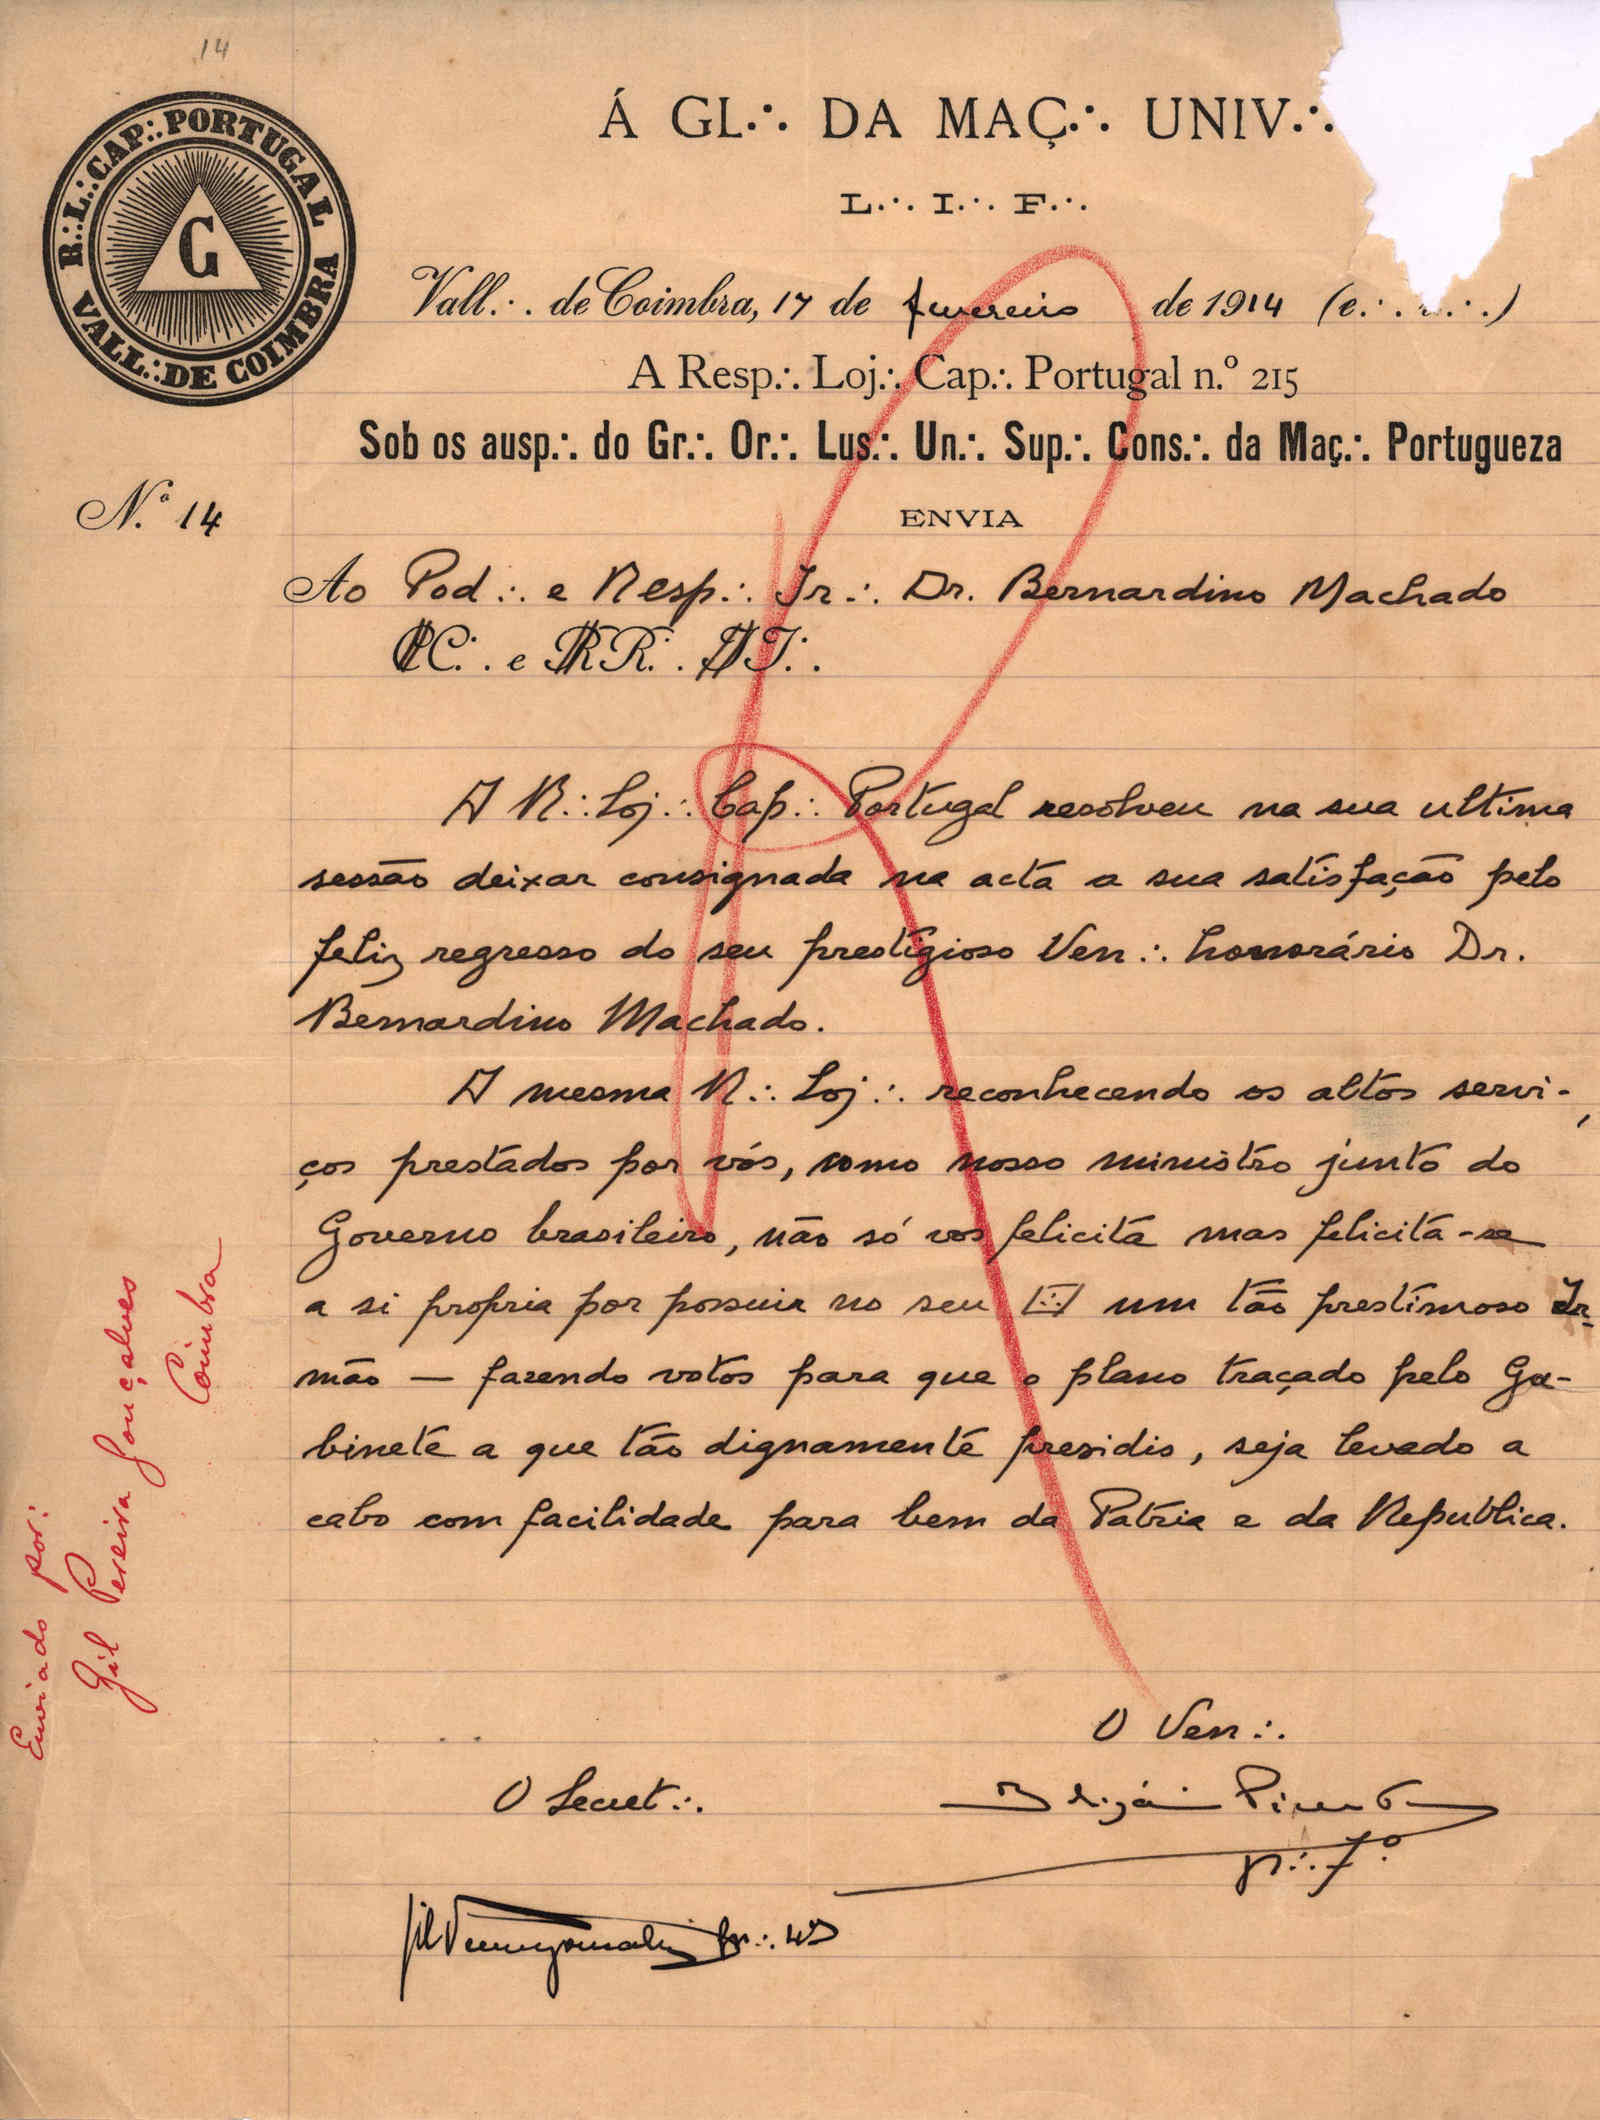 14
R∴L∴CAP∴PORTUGAL
VALL∴DE COIMBRA
G
Á GL∴ DA MAÇ∴ UNIV∴
L∴ I∴ F∴
Vall∴ de Coimbra, 17 de fevereiro de 1914 (e∴ v∴)
A Resp∴ Loj∴ Cap∴ Portugal n.º 215
Sob os ausp∴ do Gr∴ Or∴ Lus∴ Un∴ Sup∴ Cons∴ da Maç∴ Portugueza
N.º 14
ENVIA
Ao Pod∴ e Resp∴ Ir∴ Dr. Bernardino Machado
C∴ e R R∴ T∴
A R∴ Loj∴ Cap∴ Portugal resolveu na sua ultima
sessão deixar consignada na acta a sua satisfação pelo
feliz regresso do seu prestigioso Ven∴ honorário Dr.
Bernardino Machado.
A mesma R∴ Loj∴ reconhecendo os altos servi-
ços prestados por vós, como nosso ministro junto do
Governo brasileiro, não só vos felicita mas felicita-se
a si propria por possuir no seu um tão prestimoso Ir-
mão — fazendo votos para que o plano traçado pelo Ga-
binete a que tão dignamente presidis, seja levado a
cabo com facilidade para bem da Patria e da Republica.
O Ven∴
O Secret∴
Pimenta
7º
Enviado por:
Gil Pereira Gonçalves
Coimbra